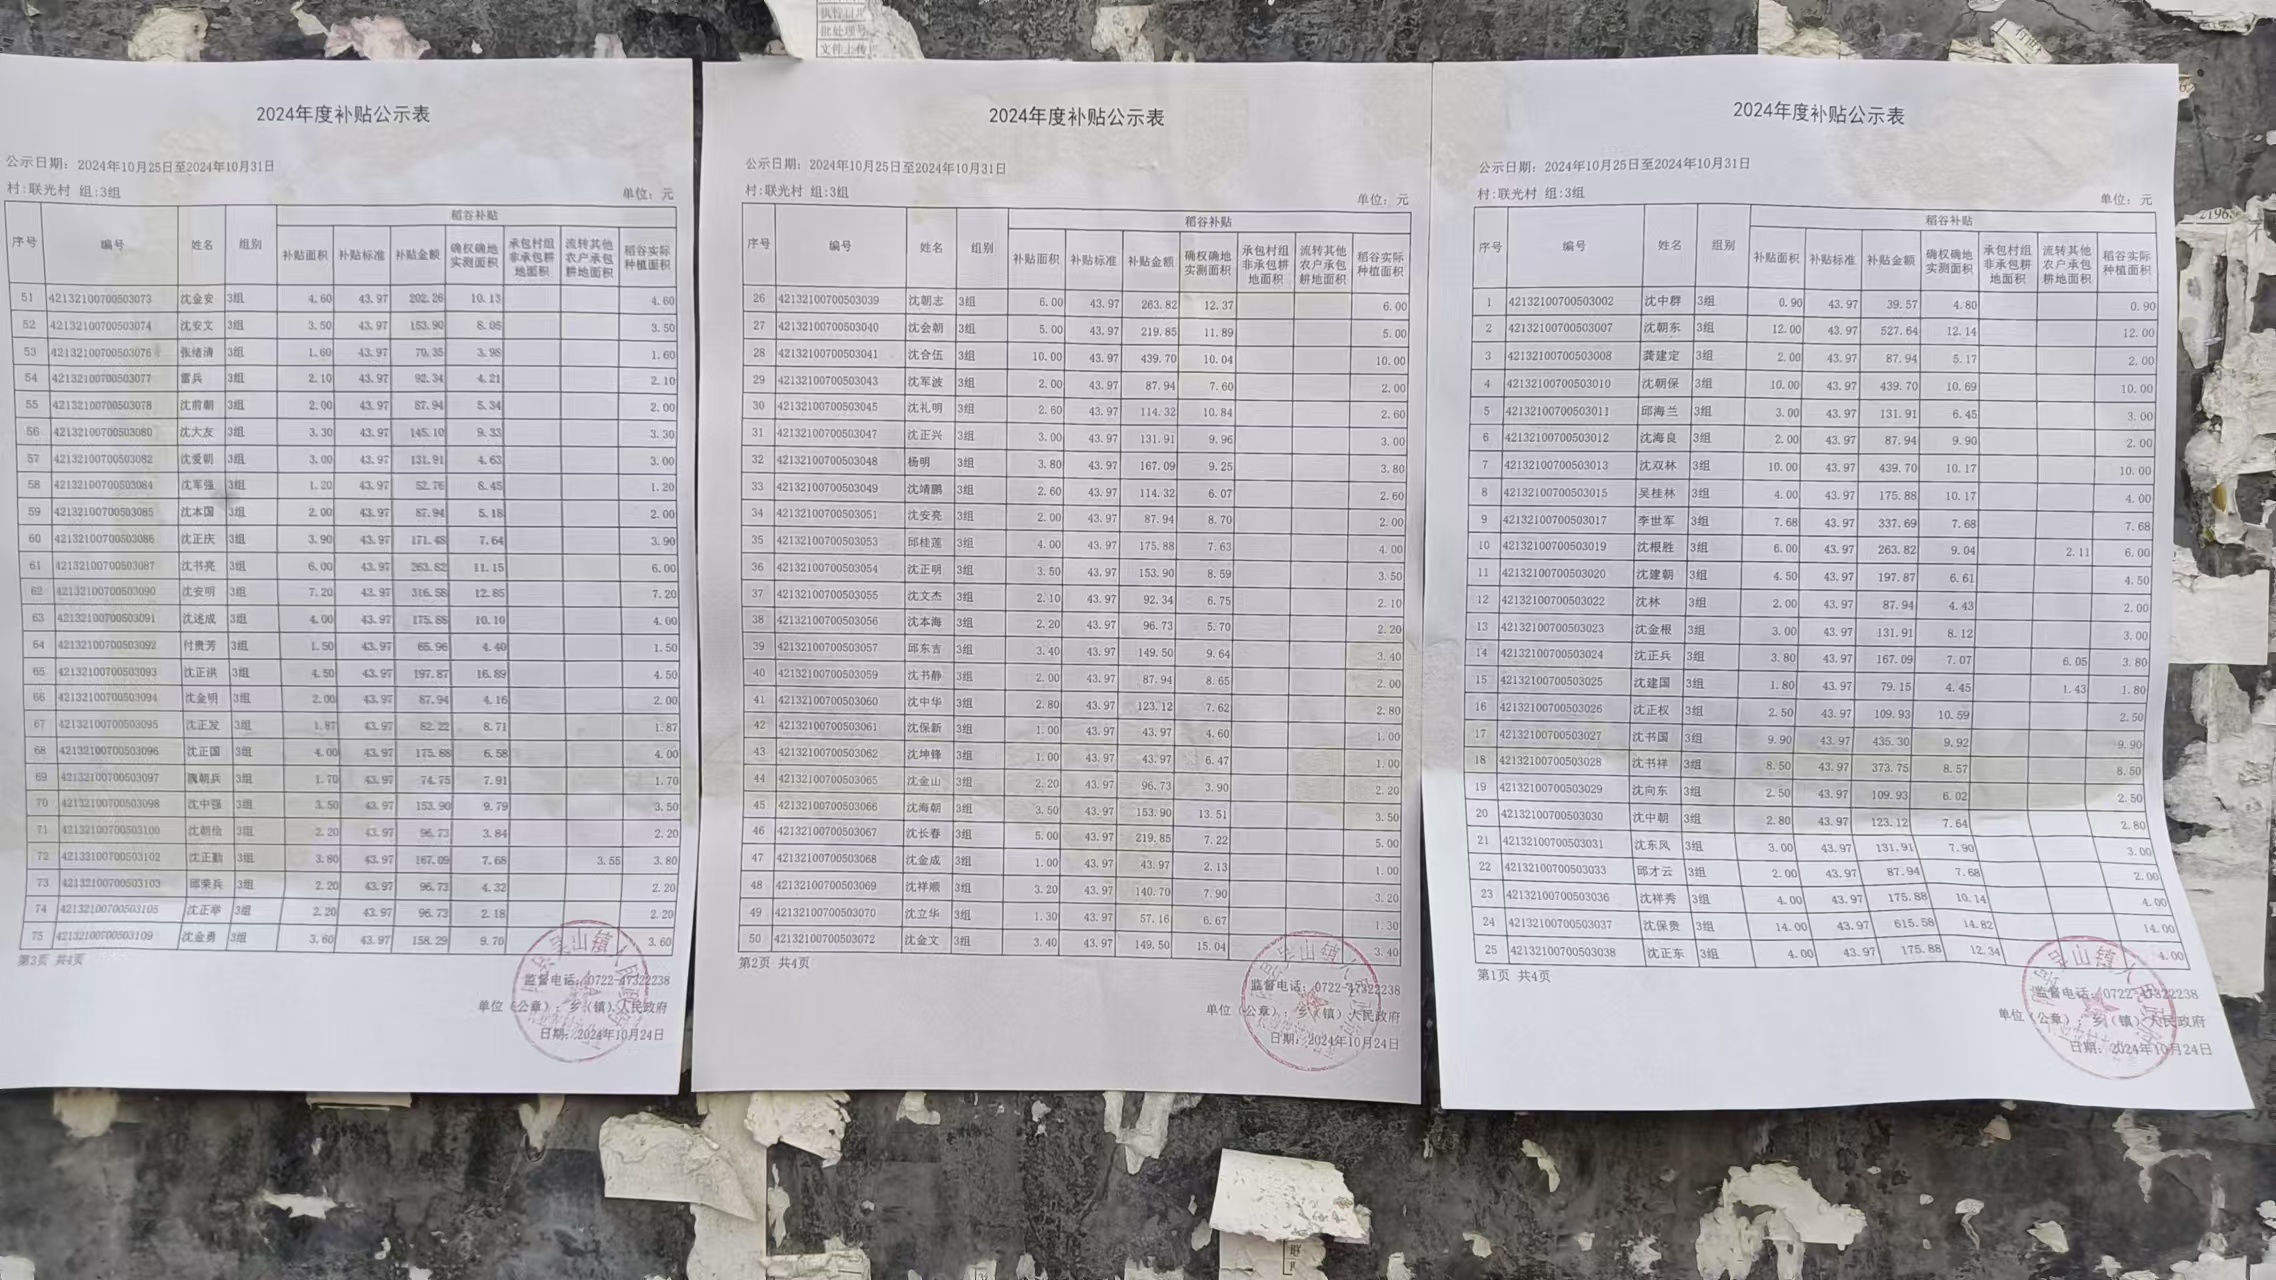 2024年度补贴公示表
公示日期: 2024年10月25日至2024年10月31日
村:联光村 组:3组
单位: 元
序号 编号 姓名 组别 稻谷补贴
补贴面积 补贴标准 补贴金额 确权确地实测面积 承包村组非承包耕地面积 流转其他农户承包耕地面积 稻谷实际种植面积
51 42132100700503073 沈金安 3组 4.60 43.97 202.26 10.13 4.60
52 42132100700503074 沈安文 3组 3.50 43.97 153.90 8.05 3.50
53 42132100700503076 张绪清 3组 1.60 43.97 70.35 3.98 1.60
54 42132100700503077 雷兵 3组 2.10 43.97 92.34 4.21 2.10
55 42132100700503078 沈前朝 3组 2.00 43.97 87.94 5.34 2.00
56 42132100700503080 沈大友 3组 3.30 43.97 145.10 9.33 3.30
57 42132100700503082 沈爱朝 3组 3.00 43.97 131.91 4.63 3.00
58 42132100700503084 沈军强 3组 1.20 43.97 52.76 8.45 1.20
59 42132100700503085 沈本国 3组 2.00 43.97 87.94 5.18 2.00
60 42132100700503086 沈正庆 3组 3.90 43.97 171.48 7.64 3.90
61 42132100700503087 沈书亮 3组 6.00 43.97 263.82 11.15 6.00
62 42132100700503090 沈安明 3组 7.20 43.97 316.58 12.85 7.20
63 42132100700503091 沈述成 3组 4.00 43.97 175.88 10.10 4.00
64 42132100700503092 付贵芳 3组 1.50 43.97 65.96 4.40 1.50
65 42132100700503093 沈正洪 3组 4.50 43.97 197.87 16.89 4.50
66 42132100700503094 沈金明 3组 2.00 43.97 87.94 4.16 2.00
67 42132100700503095 沈正发 3组 1.87 43.97 82.22 8.71 1.87
68 42132100700503096 沈正国 3组 4.00 43.97 175.88 6.58 4.00
69 42132100700503097 隗朝兵 3组 1.70 43.97 74.75 7.91 1.70
70 42132100700503098 沈中强 3组 3.50 43.97 153.90 9.79 3.50
71 42132100700503100 沈朝俭 3组 2.20 43.97 96.73 3.84 2.20
72 42132100700503102 沈正勤 3组 3.80 43.97 167.09 7.68 3.55 3.80
73 42132100700503103 邱荣兵 3组 2.20 43.97 96.73 4.32 2.20
74 42132100700503105 沈正举 3组 2.20 43.97 96.73 2.18 2.20
75 42132100700503109 沈金勇 3组 3.60 43.97 158.29 9.70 3.60
第3页 共4页
监督电话: 0722-47322238
单位(公章): 乡(镇)人民政府
日期: 2024年10月24日
2024年度补贴公示表
公示日期: 2024年10月25日至2024年10月31日
村:联光村 组:3组
单位: 元
序号 编号 姓名 组别 稻谷补贴
补贴面积 补贴标准 补贴金额 确权确地实测面积 承包村组非承包耕地面积 流转其他农户承包耕地面积 稻谷实际种植面积
26 42132100700503039 沈朝志 3组 6.00 43.97 263.82 12.37 6.00
27 42132100700503040 沈会朝 3组 5.00 43.97 219.85 11.89 5.00
28 42132100700503041 沈合伍 3组 10.00 43.97 439.70 10.04 10.00
29 42132100700503043 沈军波 3组 2.00 43.97 87.94 7.60 2.00
30 42132100700503045 沈礼明 3组 2.60 43.97 114.32 10.84 2.60
31 42132100700503047 沈正兴 3组 3.00 43.97 131.91 9.96 3.00
32 42132100700503048 杨明 3组 3.80 43.97 167.09 9.25 3.80
33 42132100700503049 沈靖鹏 3组 2.60 43.97 114.32 6.07 2.60
34 42132100700503051 沈安亮 3组 2.00 43.97 87.94 8.70 2.00
35 42132100700503053 邱桂莲 3组 4.00 43.97 175.88 7.63 4.00
36 42132100700503054 沈正明 3组 3.50 43.97 153.90 8.59 3.50
37 42132100700503055 沈文杰 3组 2.10 43.97 92.34 6.75 2.10
38 42132100700503056 沈本海 3组 2.20 43.97 96.73 5.70 2.20
39 42132100700503057 邱东吉 3组 3.40 43.97 149.50 9.64 3.40
40 42132100700503059 沈书静 3组 2.00 43.97 87.94 8.65 2.00
41 42132100700503060 沈中华 3组 2.80 43.97 123.12 7.62 2.80
42 42132100700503061 沈保新 3组 1.00 43.97 43.97 4.60 1.00
43 42132100700503062 沈坤锋 3组 1.00 43.97 43.97 6.47 1.00
44 42132100700503065 沈金山 3组 2.20 43.97 96.73 3.90 2.20
45 42132100700503066 沈海朝 3组 3.50 43.97 153.90 13.51 3.50
46 42132100700503067 沈长春 3组 5.00 43.97 219.85 7.22 5.00
47 42132100700503068 沈金成 3组 1.00 43.97 43.97 2.13 1.00
48 42132100700503069 沈祥顺 3组 3.20 43.97 140.70 7.90 3.20
49 42132100700503070 沈立华 3组 1.30 43.97 57.16 6.67 1.30
50 42132100700503072 沈金文 3组 3.40 43.97 149.50 15.04 3.40
第2页 共4页
监督电话: 0722-47322238
单位(公章): 乡(镇)人民政府
日期: 2024年10月24日
2024年度补贴公示表
公示日期: 2024年10月25日至2024年10月31日
村:联光村 组:3组
单位: 元
序号 编号 姓名 组别 稻谷补贴
补贴面积 补贴标准 补贴金额 确权确地实测面积 承包村组非承包耕地面积 流转其他农户承包耕地面积 稻谷实际种植面积
1 42132100700503002 沈中群 3组 0.90 43.97 39.57 4.80 0.90
2 42132100700503007 沈朝东 3组 12.00 43.97 527.64 12.14 12.00
3 42132100700503008 龚建定 3组 2.00 43.97 87.94 5.17 2.00
4 42132100700503010 沈朝保 3组 10.00 43.97 439.70 10.69 10.00
5 42132100700503011 邱海兰 3组 3.00 43.97 131.91 6.45 3.00
6 42132100700503012 沈海良 3组 2.00 43.97 87.94 9.90 2.00
7 42132100700503013 沈双林 3组 10.00 43.97 439.70 10.17 10.00
8 42132100700503015 吴桂林 3组 4.00 43.97 175.88 10.17 4.00
9 42132100700503017 李世军 3组 7.68 43.97 337.69 7.68 7.68
10 42132100700503019 沈根胜 3组 6.00 43.97 263.82 9.04 2.11 6.00
11 42132100700503020 沈建朝 3组 4.50 43.97 197.87 6.61 4.50
12 42132100700503022 沈林 3组 2.00 43.97 87.94 4.43 2.00
13 42132100700503023 沈金根 3组 3.00 43.97 131.91 8.12 3.00
14 42132100700503024 沈正兵 3组 3.80 43.97 167.09 7.07 6.05 3.80
15 42132100700503025 沈建国 3组 1.80 43.97 79.15 4.45 1.43 1.80
16 42132100700503026 沈正权 3组 2.50 43.97 109.93 10.59 2.50
17 42132100700503027 沈书国 3组 9.90 43.97 435.30 9.92 9.90
18 42132100700503028 沈书祥 3组 8.50 43.97 373.75 8.57 8.50
19 42132100700503029 沈向东 3组 2.50 43.97 109.93 6.02 2.50
20 42132100700503030 沈中朝 3组 2.80 43.97 123.12 7.64 2.80
21 42132100700503031 沈东风 3组 3.00 43.97 131.91 7.90 3.00
22 42132100700503033 邱才云 3组 2.00 43.97 87.94 7.68 2.00
23 42132100700503036 沈祥秀 3组 4.00 43.97 175.88 10.14 4.00
24 42132100700503037 沈保贵 3组 14.00 43.97 615.58 14.82 14.00
25 42132100700503038 沈正东 3组 4.00 43.97 175.88 12.34 4.00
第1页 共4页
监督电话: 0722-47322238
单位(公章): 乡(镇)人民政府
日期: 2024年10月24日